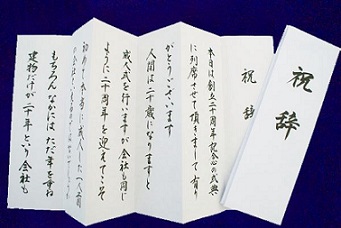 祝辞
祝辞
本日は創立二十周年記念の式典
に列席させて頂きまして有り
がとうございます
人間は二十歳になりますと
成人式を行いますが会社も同じ
ように二十周年を迎えてこそ
初めて本当に成人した一人前
の会社と
もちろんなかにはただ年を重ね
建物だけが二十年という会社も